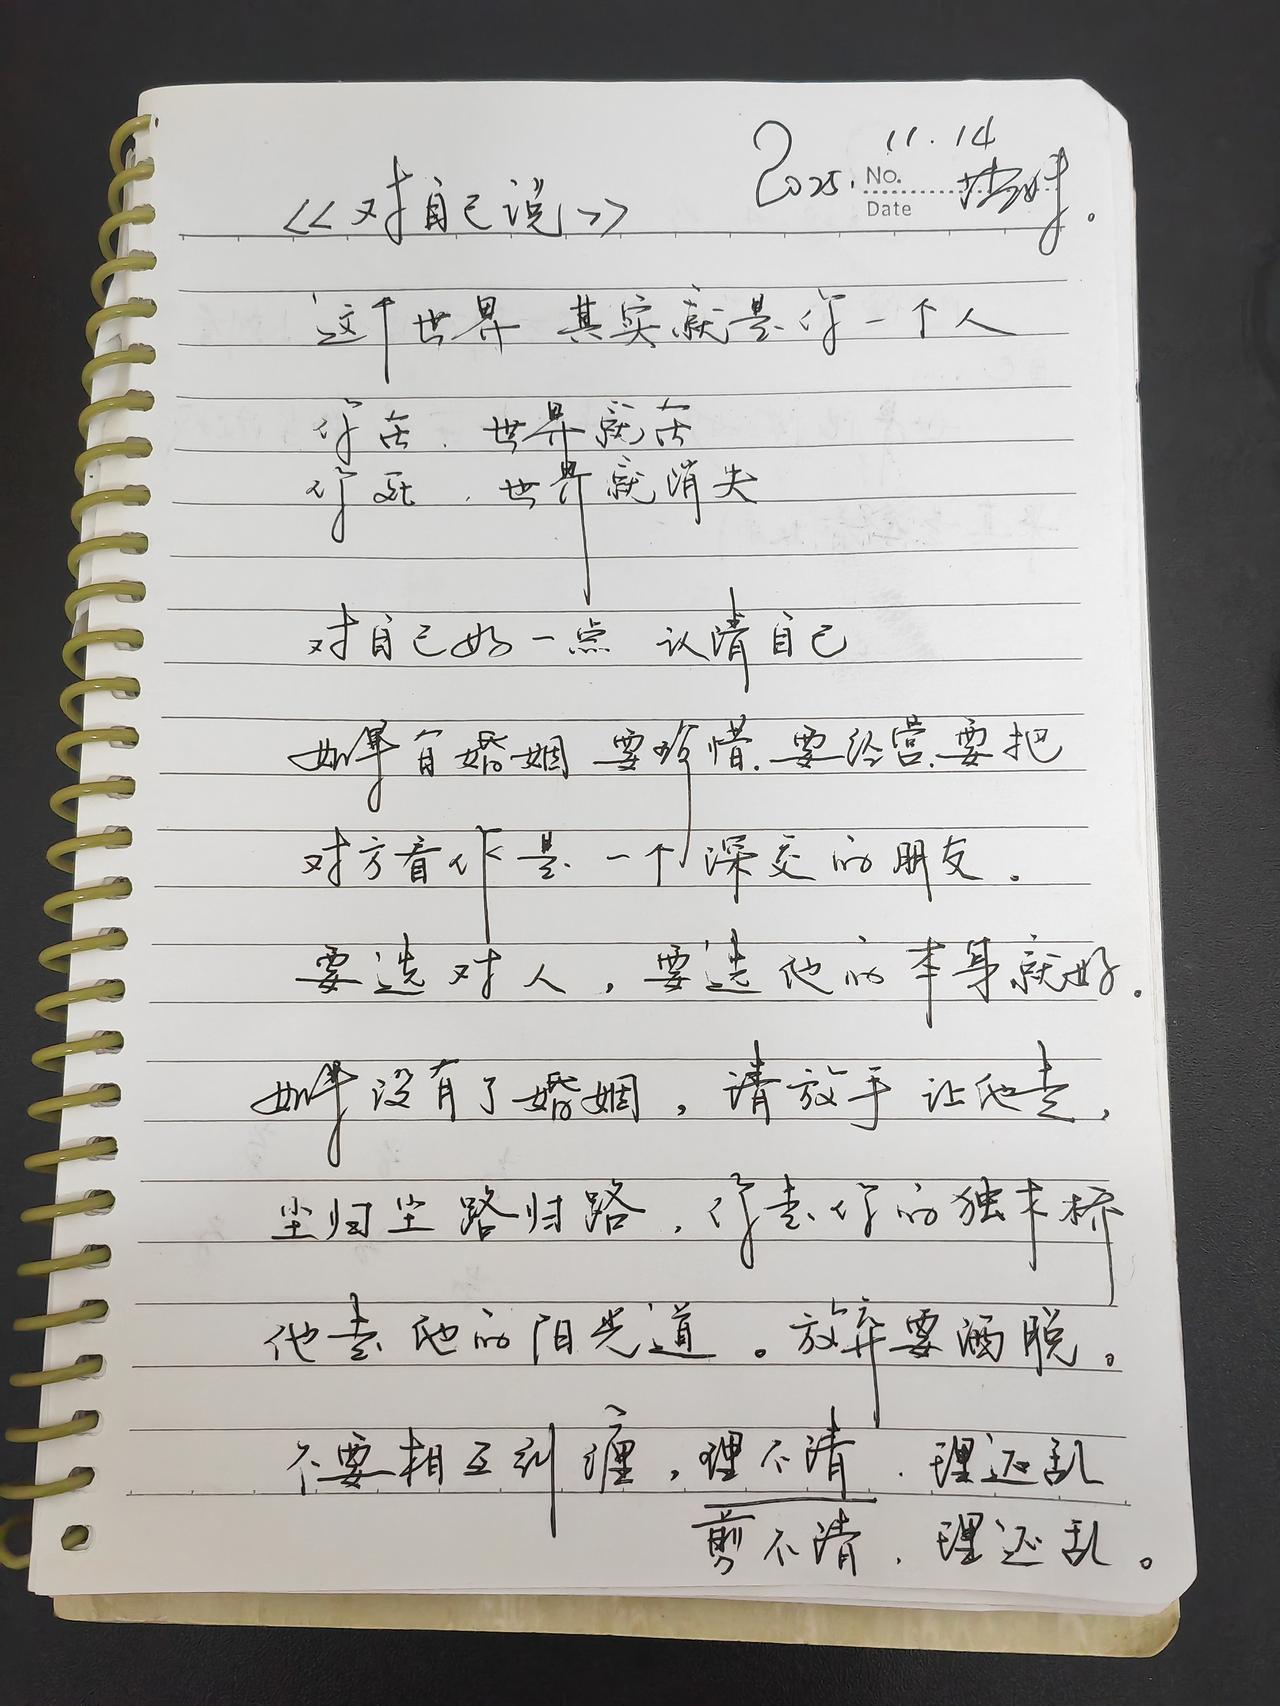 11.14
2025. No.
Date
《对自己说》
这个世界 其实就是你一个人
你在.世界就在
你死.世界就消失
对自己好一点 认清自己
如果有婚姻 要珍惜.要经营.要把
对方看作是一个深交的朋友。
要选对人，要选他的本身就好.
如果没有了婚姻，请放手让他走，
尘归尘路归路，你走你的独木桥
他走他的阳光道。放弃要洒脱。
不要相互纠缠，理不清.理还乱
剪不清.理还乱。